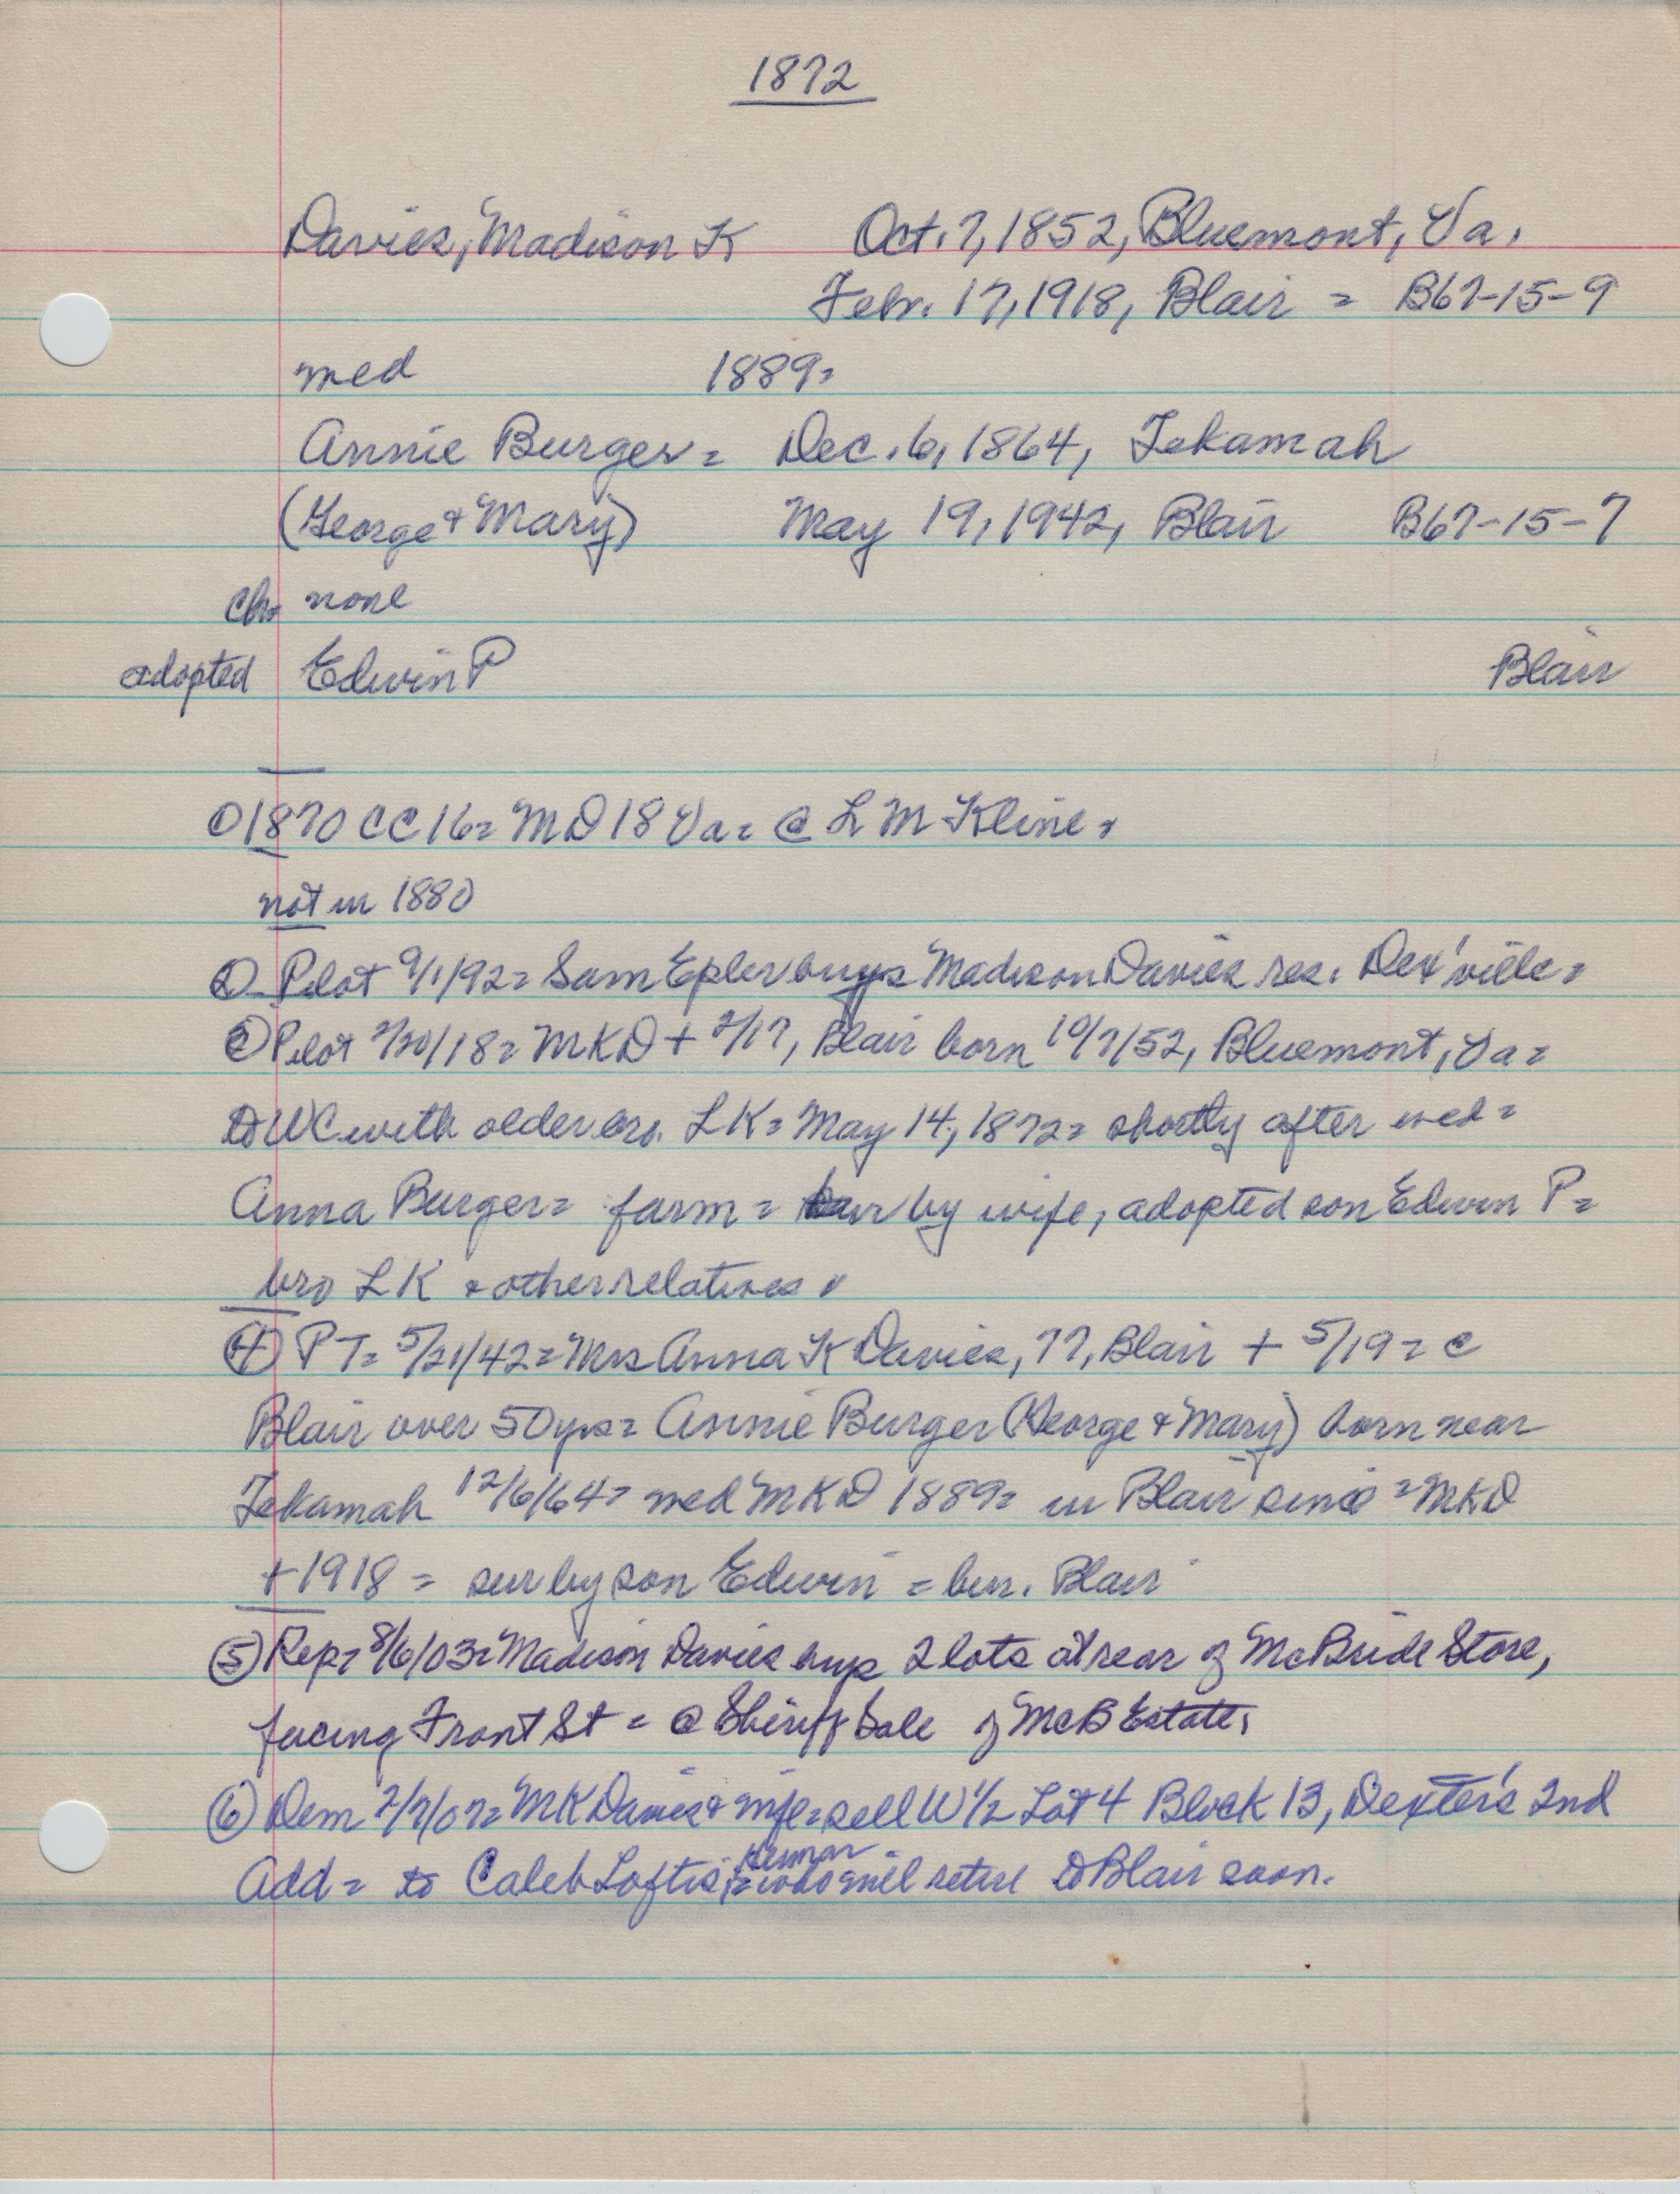 1872
Davies, Madison K Oct. 7, 1852, Bluemont, Va.
Febr. 17, 1918, Blair = B67-15-9
med 1889=
Annie Burger = Dec. 6, 1864, Tekamah
(George & Mary) May 19, 1942, Blair B67-15-7
Ch= none
adopted Edwin P Blair
① 1870 CC 16= MD 18 Va= @ L M Kline=
not in 1880
② Pilot 9/1/92= Sam Epler buys Madison Davies res. Dex'ville=
③ Pilot 2/20/18= MKD + 2/17, Blair born 10/7/52, Bluemont, Va=
to WC with older bro. LK= May 14, 1872= shortly after med=
Anna Burger= farm = sur by wife, adopted son Edwin P=
bro LK & other relatives=
④ PT= 5/21/42= Mrs Anna K Davies, 77, Blair + 5/19= @
Blair over 50 yrs= Annie Burger (George & Mary) born near
Tekamah 12/6/64= med MKD 1889= in Blair since = MKD
+1918 = sur by son Edwin = bur. Blair
⑤ Rep= 8/6/03= Madison Davies buys 2 lots at rear of McBride Store,
facing Front St = @ Sheriff Sale of McB Estate.
⑥ Dem 2/7/07= MK Davies & wife= sell W 1/2 Lot 4 Block 13, Dexter's 2nd
Add = to Caleb Loftis, = who will retire to Blair soon.